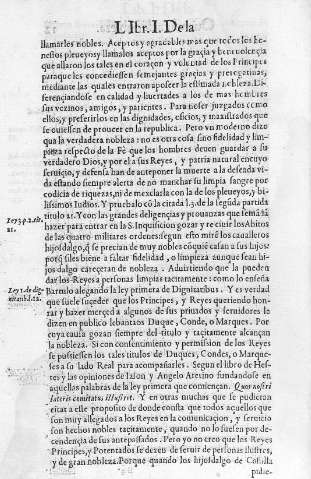 LIbr. I. De la
llamarles nobles. Aceptos y agradables mas que todos los ho-
nestos pleueyos; y llamalos aceptos por la gracia y beniuolencia
que allaron los tales en el coraçon y voluntad de los Principes
paraque les concediessen semejantes gracias y prerogatiuas,
mediante las quales entraron aposser la estimada nobleza. Di-
ferenciandose en calidad y lucrtades a los de mas hombres
sus vezinos, amigos, y parientes. Para no ser juzgados como
ellos, y preferirlos en las dignidades, oficios, y maxistrados que
se ouiessen de proueer en la republica. Pero vn moderno dizo
qua la verdadera nobleza: no es otra cosa sino fidelidad y lim-
pieza respecto de la Fè que los hombres deuen guardar a su
verdadero Dios, y por el a sus Reyes, y patria natural en cuyo
seruicio, y defensa han de anteponer la muerte a la deseada vi-
da estando siempre alerta de no manchar su limpia sangre por
codicia de riquezas, ni de mexclarla con la de los pleueyos, y bi-
lissimos Iudios. Y prueuabalo cõ la cita l. 3. de la segũda partida
Ley 3. p. 2. tit.
21.
titulo 21. Y con las grandes deligencias y prouanças que se mãdã
hazer para entrar en la S. Inquisicion gozar y recivir los Abitos
de las quatro militares ordenes: segun esto mirẽ los caualleros
hijosdalgo, q̃ se precian de muy nobles cõ quiẽ casan a sus hijos
porq̃ si les biene a faltar fidelidad, o limpieza aunque sean hi-
jos dalgo careceran de nobleza. Aduirtiendo que la pueden
dar los Reyes a personas limpias tacitamente: como lo enseña
Ley 1. de dig-
Bartulo alegando la ley primera de Dignitatibus. Y es verdad
que suele suceder que los Principes, y Reyes queriendo hon-
rar y hazer merced a algunos de sus priuados y seruidores le
dizen en publico leuantaos Duque, Conde, o Marques. Por
cuya causa gozan siempre del titulo y tacitamente alcançan
la nobleza. Si con consentimiento y permission de los Reyes
se pusiessen los tales titulos de Duques, Condes, o Marque-
ses a su lado Real para acompañarles. Segun el libro de Hes-
tes y las opiniones de Iason y Angelo Aretino fundandose en
aquellos palabras de la ley primera que comiençan. Quos nostri
lateris comitatus illustrat. Y en otras muchas que se pudieron
citar a este proposito de donde consta que todos aquellos que
son muy allegados a los Reyes en la comunicacion, y seruicio
son hechos tacitamente nobles, quando no lo fuessen por de-
cendencia de sus antepasados. Pero yo no creo que los Reyes
Principes, y Potentados se dexen de seruir de personas ilustres,
y de gran nobleza. Porque quando los hijosdalgo de Castilla
pudie-